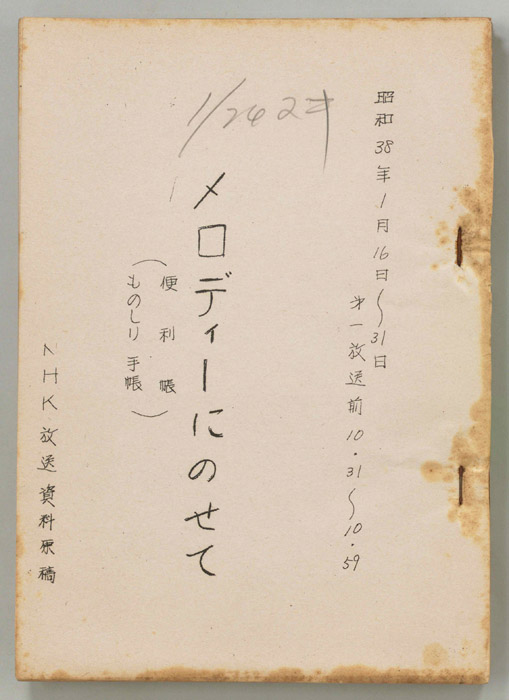 昭和38年1月16日〜31日
第一放送前10.31〜10.59
メロディーにのせて
(便利帳
ものしり手帳)
NHK放送資料原稿